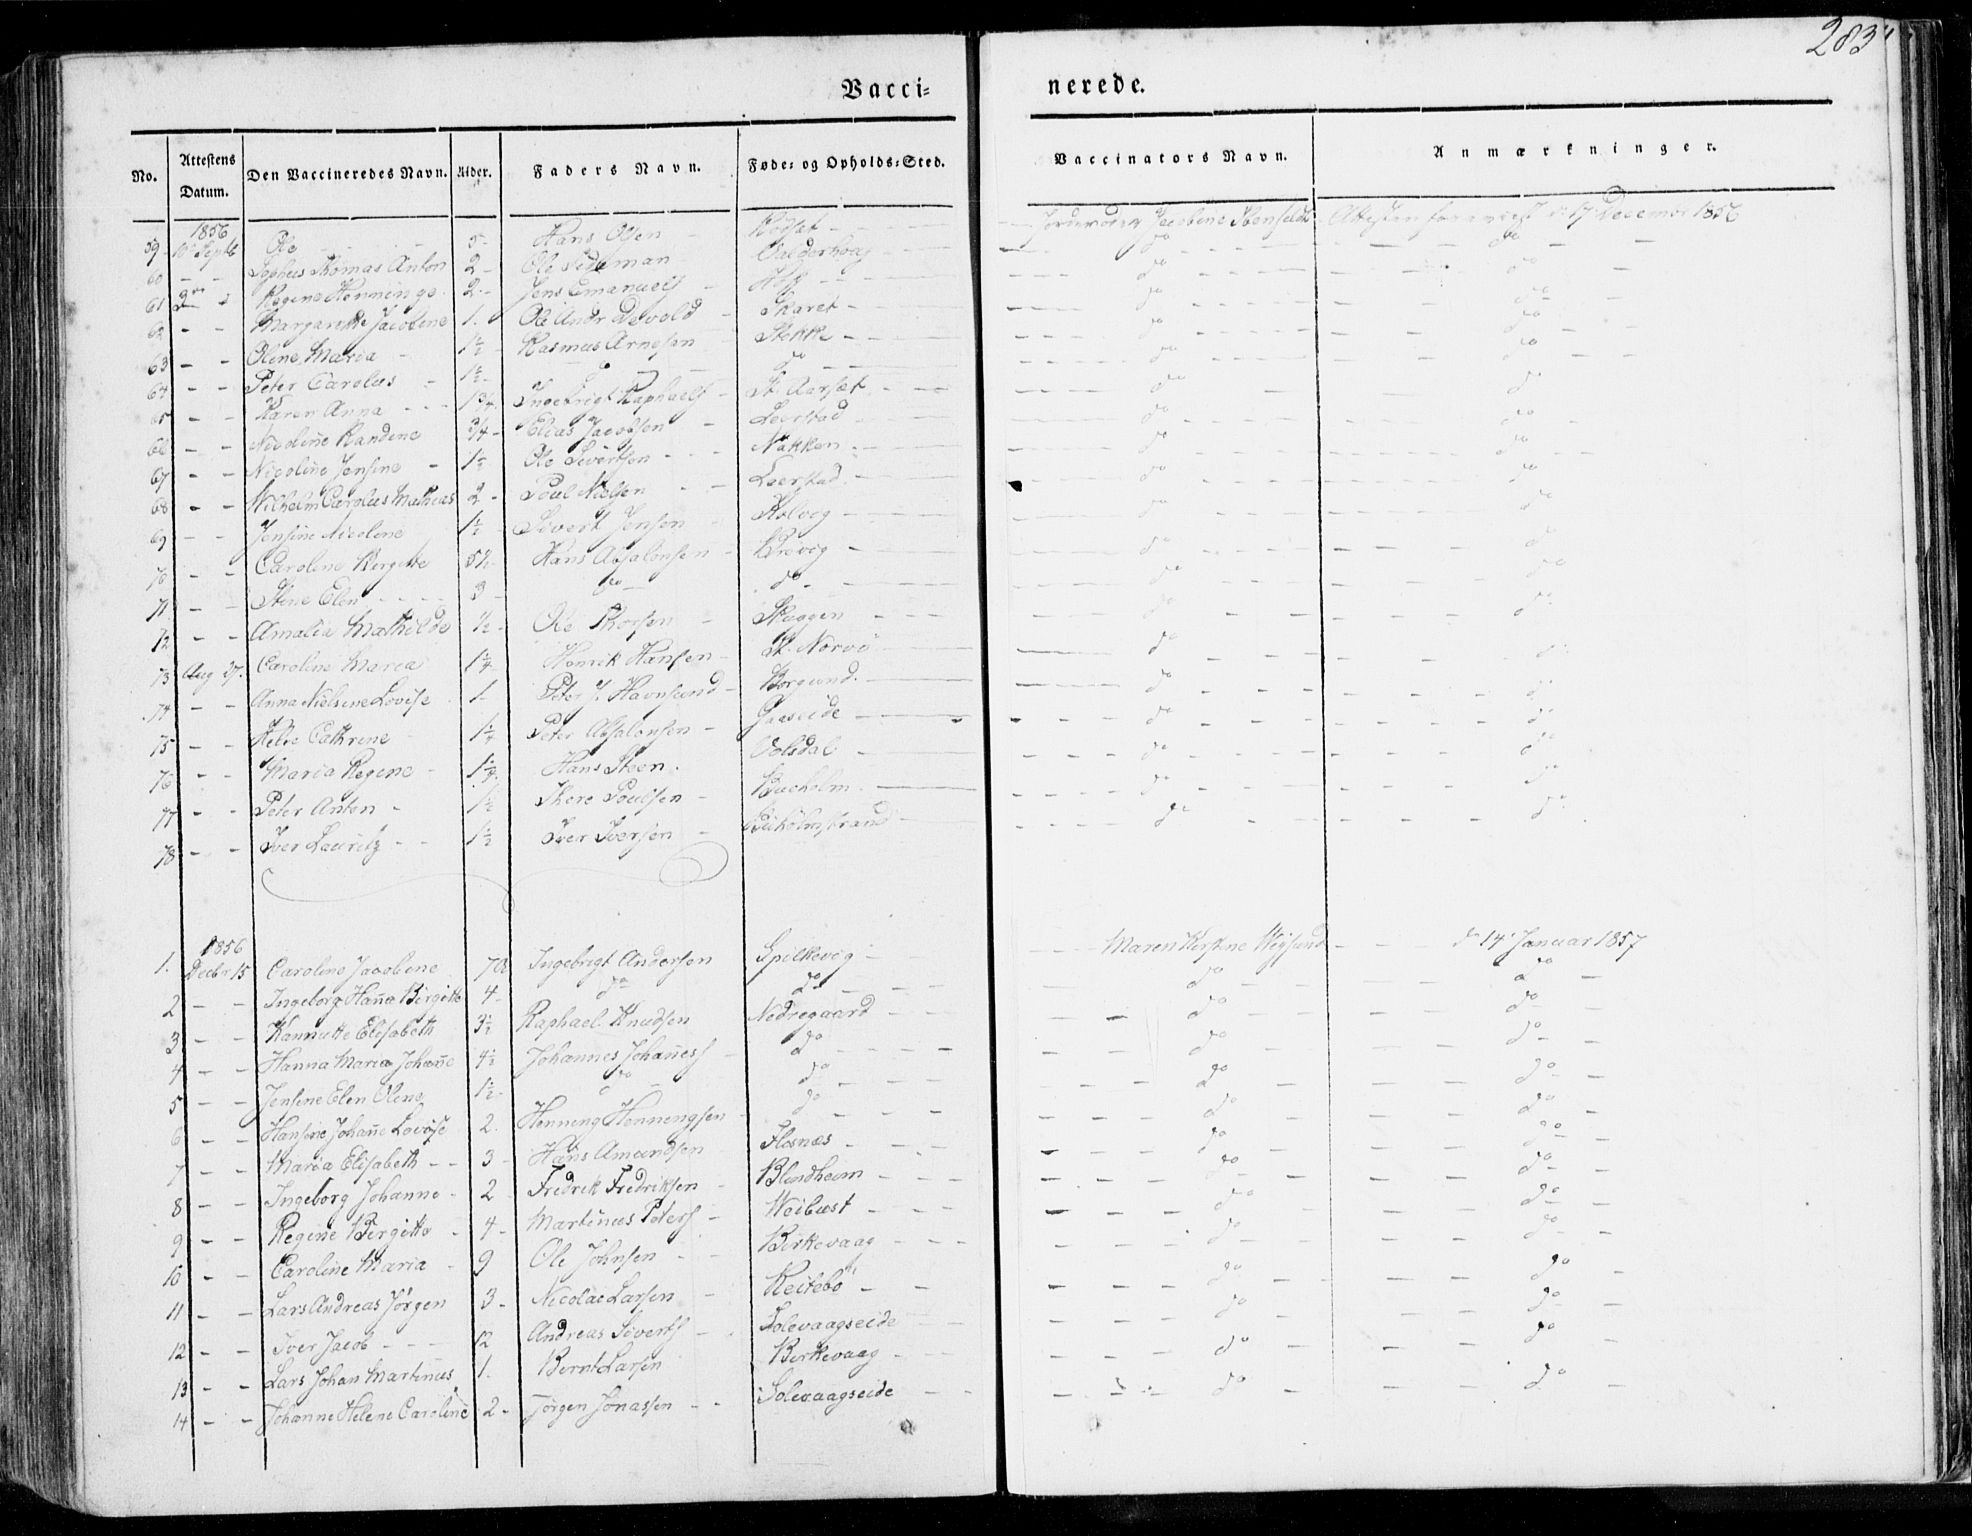 283
Vacci= nerede.
No. Attestens Datum. Den Vaccineredes Navn. Alder. Faders Navn. Føde- og Opholds-Sted. Vaccinators Navn. Anmærkninger.
1856
59 10 Septb Ole 5 Hans Olsen Rødset Jordemoder Jacobine Stenfeldt Attesten foreviist d: 17 December 1856
60 - - Sephus Thomas Anton 2 Ole Sideman Valderhoug do do
61 Regine Henninge 2 Jens Emanuels Hoff do do
62 - - Margarethe Jacobine 1 Ole Andr Devold Skaret do do
63 - - Oline Maria 1½ Rasmus Arnesen Stokke do do
64 - - Peter Carolus 1½ do do do do
65 - - Karen Anna 1¾ Ingebrigt Raphaels St. Aarsæt do do
66 - - Nicoline Randine ¾ Elias Jacobsen Leerstad do do
67 - - Nicoline Jensine 1½ Ole Sivertsen Nakken do do
68 - - Wilhelm Carolus Mathias 2 Poul Nielsen Leerstad do do
69 - - Jensine Nicoline 1½ Sivert Jensen Kolvig do do
70 - - Caroline Birgitte 5½ Hans Absalonsen Brevig do do
71 - - Stine Elen 3 do do do do
72 - - Amalia Mathilde ½ Ole Thorsen Skuggen do do
73 Aug 27. Caroline Maria 1¼ Henrik Hansen St. Norvø do do
74 - - Anna Nielsine Lovise 1 Peter J. Havnsund Borgund do do
75 - - Cathrine 1¼ Peter Absalonsen Gaaseide do do
76 - - Maria Regine 1¼ Hans Steen Volsdal do do
77 - - Peter Anton 1½ Thore Poulsen Bueholm do do
78 - - Iver Lauritz 1½ Iver Iversen Buholmstrand do do
1856
1. Decbr 15 Caroline Jacobine 7 Ingebrigt Andersen Spilkevig Maren Kirstine Wegsund d 14 Januar 1857
2 - - Ingeborg Hanna Birgitte 4 do do do do
3 - - Hannatte Elisabeth 3½ Raphael Knudsen Nedregaard do do
4 - - Hanna Maria Johanne 4½ Johannes Johaness do do do
5 - - Jensine Elen Oline 1½ do do do do
6 - - Hansine Johanne Lovise 2. Henning Henningsen do do do
7 - - Maria Elisabeth 3 Hans Amundsen Flosnæs do do
8 - - Ingeborg Johanne 2 Fredrik Fredriksen Blindheim do do
9 - - Regine Birgitte 4 Martinus Peters Weibust do do
10 - - Caroline Maria 9 Ole Johnsen Birkevaag do do
11 - - Lars Andreas Jørgen 3 Nicolai Larsen Reitebø do do
12 - - Iver Jacob 12 Andreas Siverts Solevaagseide do do
13 - - Lars Johan Martinus 1. Bernt Larsen Birkevaag do do
14 - - Johanne Helene Caroline 2 Jørgen Jonassen Solevaagseide do do